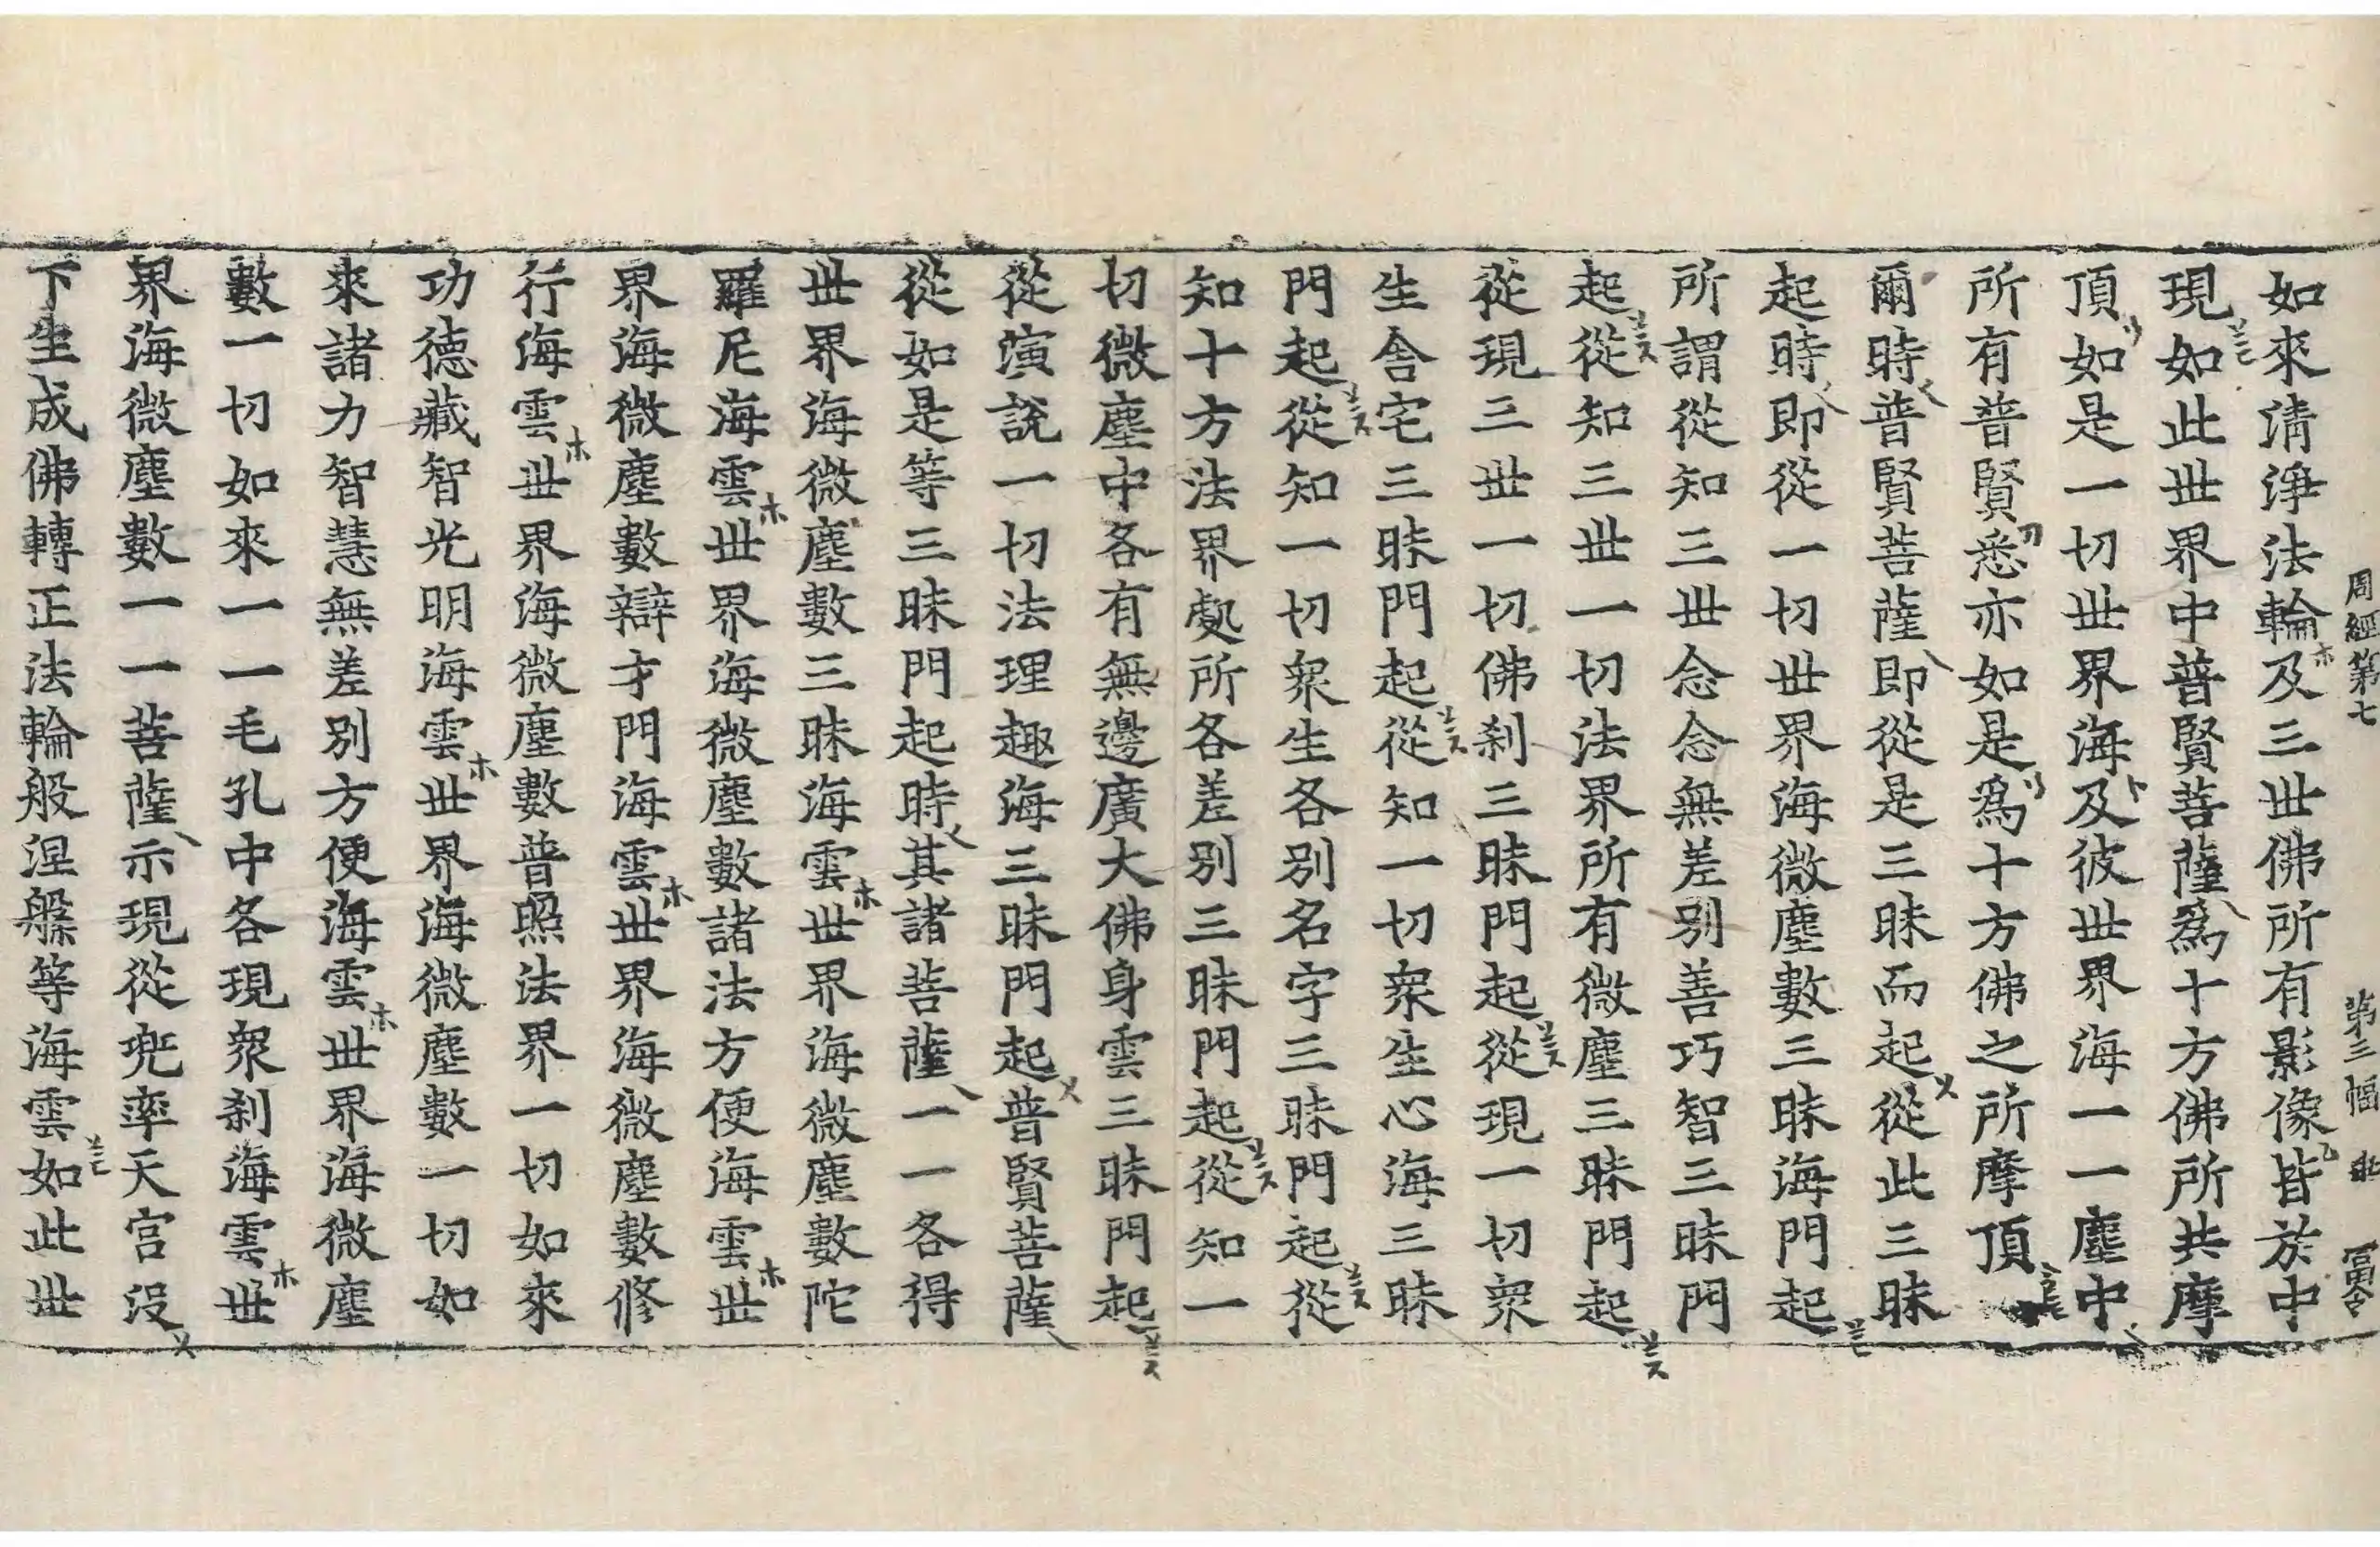 周經第七 第三幅
如來清淨法輪及三世佛所有影像皆於中
現如此世界中普賢菩薩爲十方佛所共摩
頂如是一切世界海及彼世界海一一塵中
所有普賢悉亦如是爲十方佛之所摩頂
爾時普賢菩薩即從是三昧而起從此三昧
起時即從一切世界海微塵數三昧海門起
所謂從知三世念念無差別善巧智三昧門
起從知三世一切法界所有微塵三昧門起
從現三世一切佛剎三昧門起從現一切衆
生舍宅三昧門起從知一切衆生心海三昧
門起從知一切衆生各別名字三昧門起從
知十方法界處所各差別三昧門起從知一
切微塵中各有無邊廣大佛身雲三昧門起
從演說一切法理趣海三昧門起普賢菩薩
從如是等三昧門起時其諸菩薩一一各得
世界海微塵數三昧海雲世界海微塵數陀
羅尼海雲世界海微塵數諸法方便海雲世
界海微塵數辯才門海雲世界海微塵數修
行海雲世界海微塵數普照法界一切如來
功德藏智光明海雲世界海微塵數一切如
來諸力智慧無差別方便海雲世界海微塵
數一切如來一一毛孔中各現衆剎海雲世
界海微塵數一一菩薩示現從兜率天宮沒
下生成佛轉正法輪般涅槃等海雲如此世